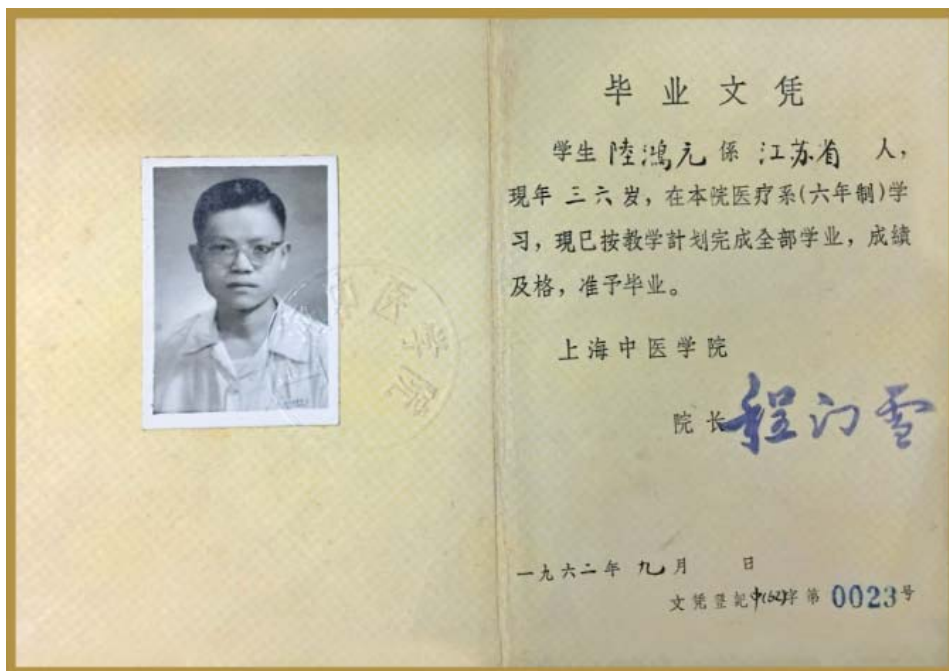 毕业文凭
学生 陸鴻元 係 江苏省 人，
現年 三六 岁，在本院医疗系(六年制)学
习，現已按教学計划完成全部学业，成績
及格，准予毕业。
上海中医学院
院长 程门雪
一九六二年 九月 日
文凭登記中(62)字第 0023号
医学院